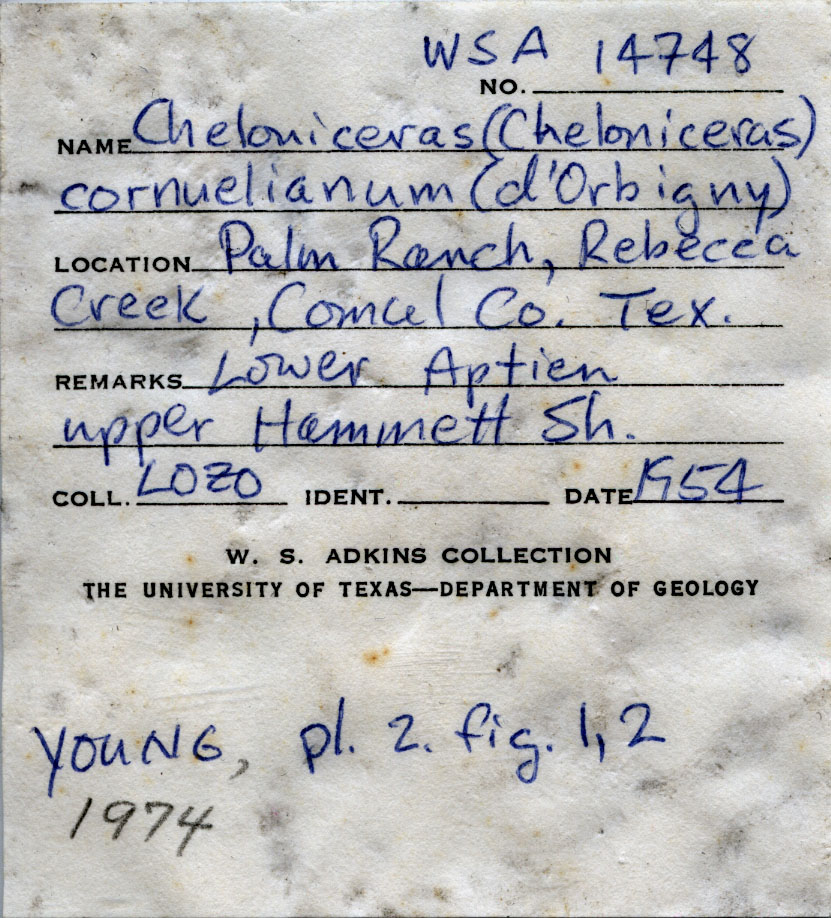 WSA 14748
NO.
NAME Cheloniceras (Cheloniceras)
cornuelianum (d'Orbigny)
LOCATION Palm Ranch, Rebecca
Creek, Comal Co. Tex.
REMARKS Lower Aptien
upper Hammett Sh.
COLL. LOZO IDENT. DATE 1954
W. S. ADKINS COLLECTION
THE UNIVERSITY OF TEXAS—DEPARTMENT OF GEOLOGY
YOUNG, pl. 2. fig. 1,2
1974